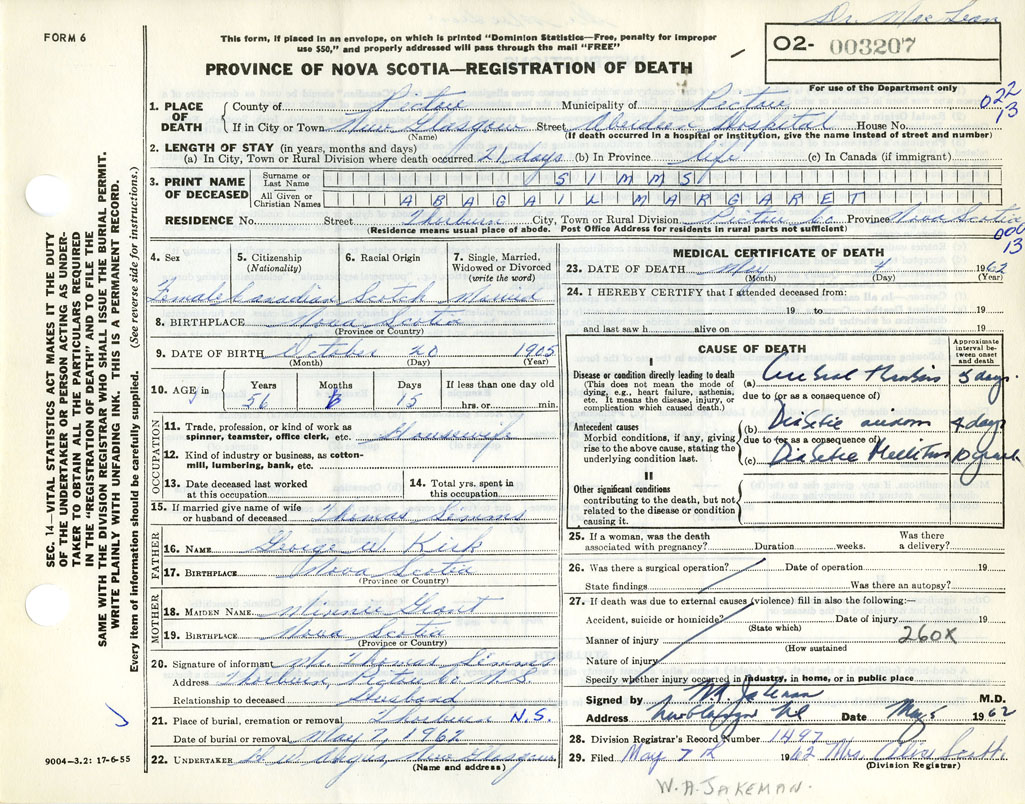 Dr. Mac Lean
FORM 6
This form, if placed in an envelope, on which is printed "Dominion Statistics—Free, penalty for improper
use $50," and properly addressed will pass through the mail "FREE"
02- 003207
PROVINCE OF NOVA SCOTIA—REGISTRATION OF DEATH
For use of the Department only
022
13
1. PLACE OF DEATH { County of Pictou Municipality of Pictou
If in City or Town New Glasgow Street Aberdeen Hospital House No.
(Name) (If death occurred in a hospital or institution, give the name instead of street and number)
2. LENGTH OF STAY (in years, months and days)
(a) In City, Town or Rural Division where death occurred 21 days (b) In Province life (c) In Canada (if immigrant)
3. PRINT NAME OF DECEASED
Surname or Last Name SIMMS
All Given or Christian Names ABAGAIL MARGARET
RESIDENCE No. Street Thorburn City, Town or Rural Division Pictou Co Province Nova Scotia
(Residence means usual place of abode. Post Office Address for residents in rural parts not sufficient)
000
13
4. Sex 5. Citizenship (Nationality) 6. Racial Origin 7. Single, Married, Widowed or Divorced (write the word)
Female Canadian Scotch Married
8. BIRTHPLACE Nova Scotia
(Province or Country)
9. DATE OF BIRTH October 20 1905
(Month) (Day) (Year)
10. AGE in Years Months Days If less than one day old
56 6 15 hrs. or min.
OCCUPATION
11. Trade, profession, or kind of work as
spinner, teamster, office clerk, etc. Housewife
12. Kind of industry or business, as cotton-
mill, lumbering, bank, etc.
13. Date deceased last worked
at this occupation
14. Total yrs. spent in
this occupation
15. If married give name of wife
or husband of deceased Thomas Simms
FATHER
16. NAME George W. Kirk
17. BIRTHPLACE Nova Scotia
(Province or Country)
MOTHER
18. MAIDEN NAME Minnie Grant
19. BIRTHPLACE Nova Scotia
(Province or Country)
20. Signature of informant Mr. Thomas Simms
Address Thorburn, Pictou Co N.S.
Relationship to deceased Husband
21. Place of burial, cremation or removal Thorburn N.S.
Date of burial or removal May 7, 1962
22. UNDERTAKER New Glasgow
(Name and address)
MEDICAL CERTIFICATE OF DEATH
23. DATE OF DEATH May 1962
(Month) (Day) (Year)
24. I HEREBY CERTIFY that I attended deceased from:
19 to 19
and last saw h alive on 19
CAUSE OF DEATH
Approximate interval between onset and death
I
Disease or condition directly leading to death
(This does not mean the mode of
dying, e.g., heart failure, asthenia,
etc. It means the disease, injury, or
complication which caused death.)
(a) 5 days
due to (or as a consequence of)
Antecedent causes
Morbid conditions, if any, giving
rise to the above cause, stating the
underlying condition last.
(b) Diabetic 4 days
due to (or as a consequence of)
(c) Diabetic Mellitus 10 years
II
Other significant conditions
contributing to the death, but not
related to the disease or condition
causing it.
25. If a woman, was the death
associated with pregnancy? Duration weeks. Was there
a delivery?
26. Was there a surgical operation? Date of operation 19
State findings Was there an autopsy?
27. If death was due to external causes (violence) fill in also the following:—
Accident, suicide or homicide? Date of injury 19
(State which)
Manner of injury 260X
(How sustained
Nature of injury
Specify whether injury occurred in industry, in home, or in public place
Signed by W.A. Jakeman M.D.
Address New Glasgow NS Date May 5 1962
28. Division Registrar's Record Number 1497
29. Filed May 7th 1962 Mrs. Alice Scott
(Division Registrar)
W.A. JAKEMAN.
SEC. 14—VITAL STATISTICS ACT MAKES IT THE DUTY
OF THE UNDERTAKER OR PERSON ACTING AS UNDER-
TAKER TO OBTAIN ALL THE PARTICULARS REQUIRED
IN THE "REGISTRATION OF DEATH" AND TO FILE THE
SAME WITH THE DIVISION REGISTRAR WHO SHALL ISSUE THE BURIAL PERMIT.
WRITE PLAINLY WITH UNFADING INK. THIS IS A PERMANENT RECORD.
Every item of information should be carefully supplied. (See reverse side for instructions.)
9004—3.2: 17-6-55